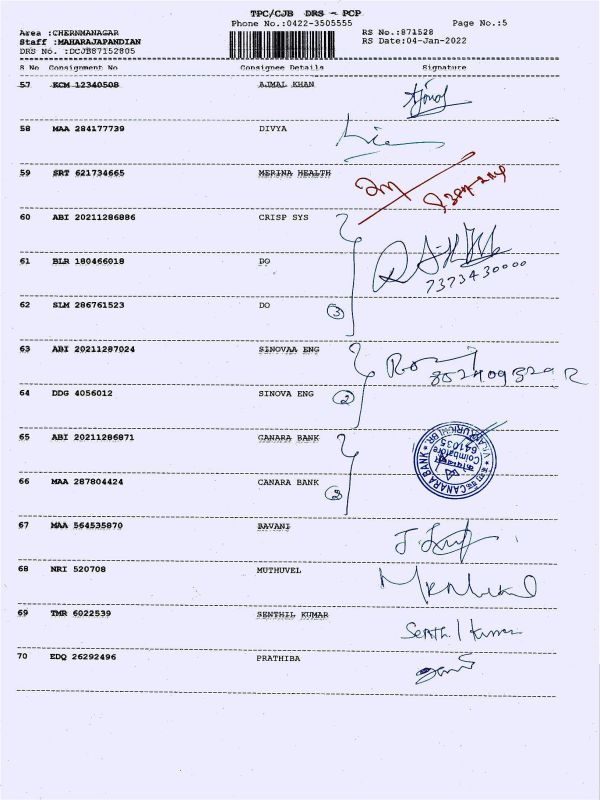 TPC/CJB DRS - PCP
Phone No.:0422-3505555 Page No.:5
Area :CHERNMANAGAR RS No.:871528
Staff :MAHARAJAPANDIAN RS Date:04-Jan-2022
DRS No. :DCJB87152805
S No Consignment No Consignee Details Signature
57 KCM 12340508 AJMAL KHAN
58 MAA 284177739 DIVYA
59 SRT 621734665 MERINA HEALTH
60 ABI 20211286886 CRISP SYS
61 BLR 180466018 DO
7373430000
62 SLM 286761523 DO
3
63 ABI 20211287024 SINOVAA ENG
64 DDG 4056012 SINOVA ENG
2
65 ABI 20211286871 CANARA BANK
CANARA BANK
Coimbatore
641035
66 MAA 287804424 CANARA BANK
2
67 MAA 564535870 BAVANI
68 NRI 520708 MUTHUVEL
69 TMR 6022539 SENTHIL KUMAR Senthil Kumar
70 EDQ 26292496 PRATHIBA